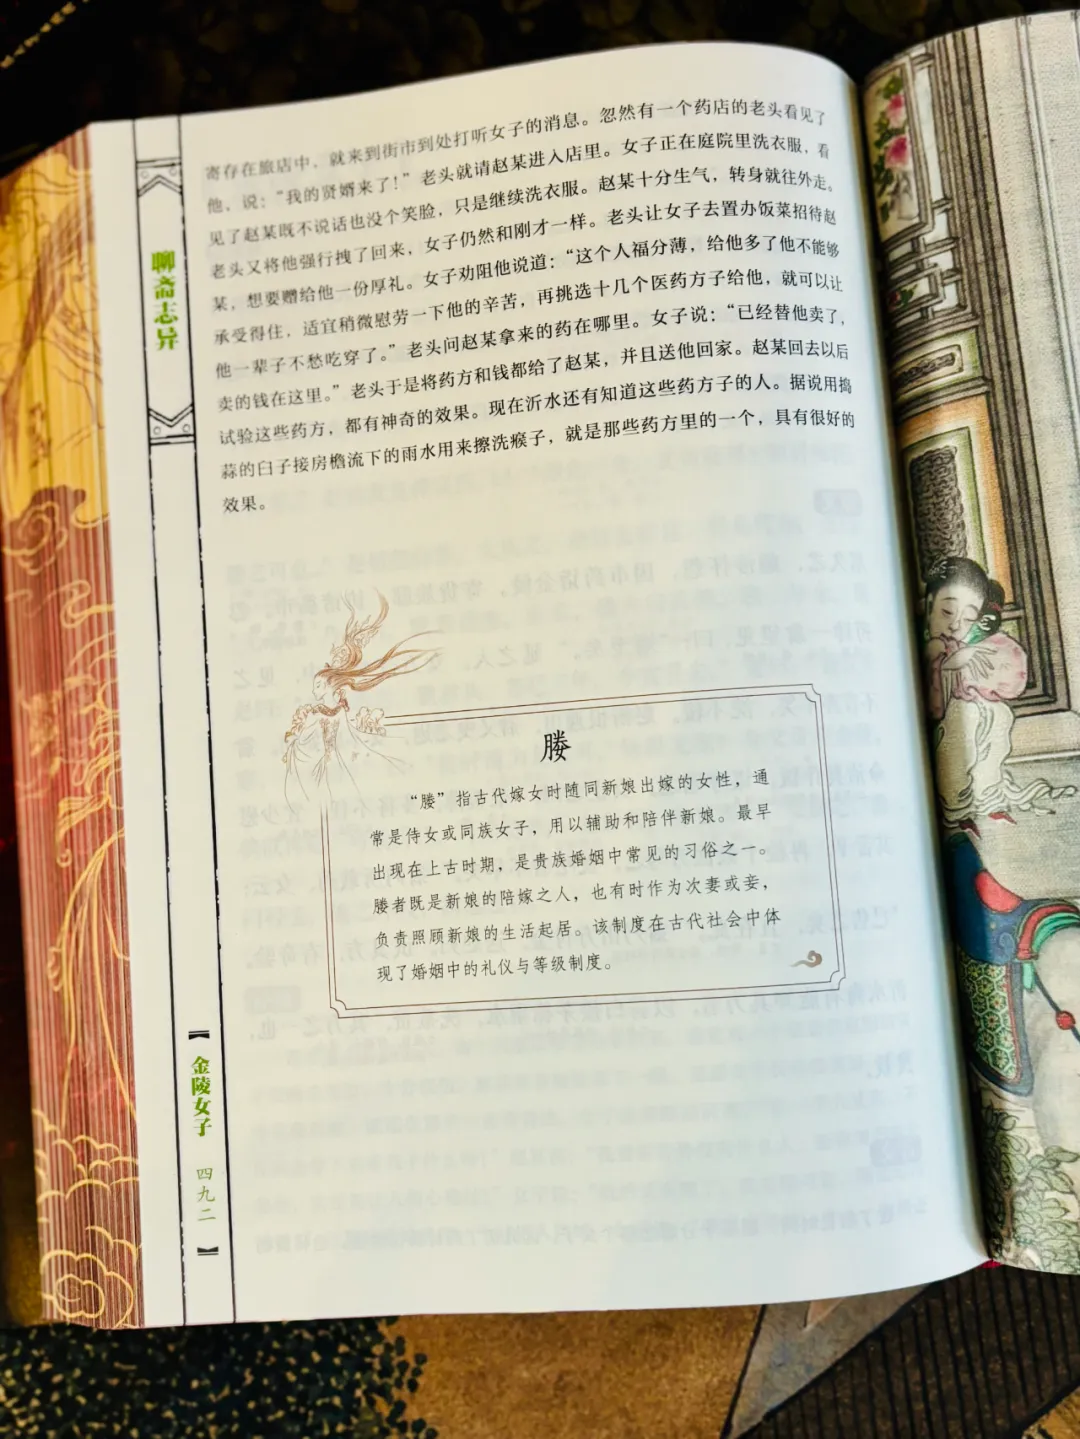 寄存在旅店中，就来到街市到处打听女子的消息。忽然有一个药店的老头看见了
他，说：“我的贤婿来了！”老头就请赵某进入店里。女子正在庭院里洗衣服，看
见了赵某既不说话也没个笑脸，只是继续洗衣服。赵某十分生气，转身就往外走。
老头又将他强行拽了回来，女子仍然和刚才一样。老头让女子去置办饭菜招待赵
某，想要赠给他一份厚礼。女子劝阻他说道：“这个人福分薄，给他多了他不能够
承受得住，适宜稍微慰劳一下他的辛苦，再挑选十几个医药方子给他，就可以让
他一辈子不愁吃穿了。”老头问赵某拿来的药在哪里。女子说：“已经替他卖了，
卖的钱在这里。”老头于是将药方和钱都给了赵某，并且送他回家。赵某回去以后
试验这些药方，都有神奇的效果。现在沂水还有知道这些药方子的人。据说用捣
蒜的臼子接房檐流下的雨水用来擦洗瘊子，就是那些药方里的一个，具有很好的
效果。
媵
“媵”指古代嫁女时随同新娘出嫁的女性，通
常是侍女或同族女子，用以辅助和陪伴新娘。最早
出现在上古时期，是贵族婚姻中常见的习俗之一。
媵者既是新娘的陪嫁之人，也有时作为次妻或妾，
负责照顾新娘的生活起居。该制度在古代社会中体
现了婚姻中的礼仪与等级制度。
聊斋志异
金陵女子
四九二